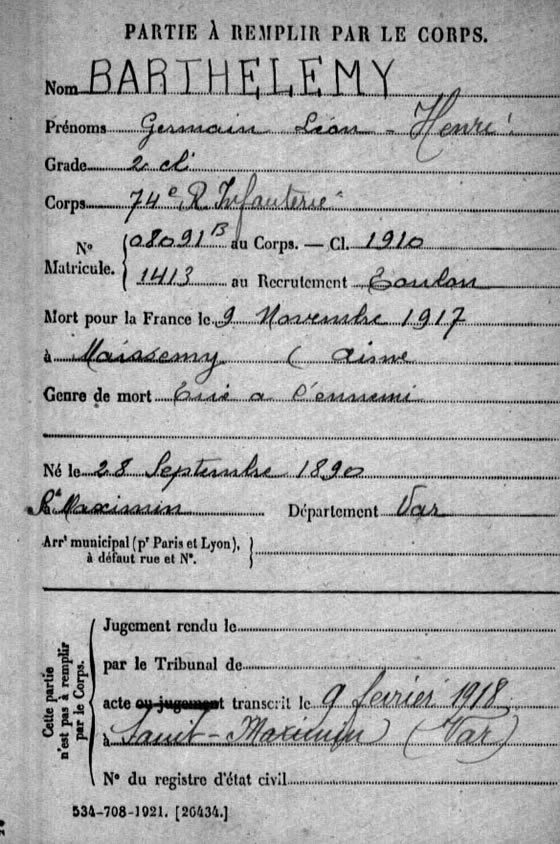 PARTIE À REMPLIR PAR LE CORPS.
Nom BARTHELEMY
Prénoms Germain Léon - Henri
Grade 2 cl
Corps 74e R Infanterie
N° Matricule. 08091 B au Corps. — Cl. 1910
1413 au Recrutement Toulon
Mort pour la France le 9 Novembre 1917
à Maissemy ( Aisne
Genre de mort Tué a l'ennemi
Né le 28 Septembre 1890
à St Maximin Département Var
Arrt municipal (pr Paris et Lyon),
à défaut rue et N°.
Cette partie n'est pas à remplir par le Corps.
Jugement rendu le
par le Tribunal de
acte ou jugement transcrit le 9 février 1918
à Saint-Maximin (Var)
N° du registre d'état civil
534-708-1921. [26434.]